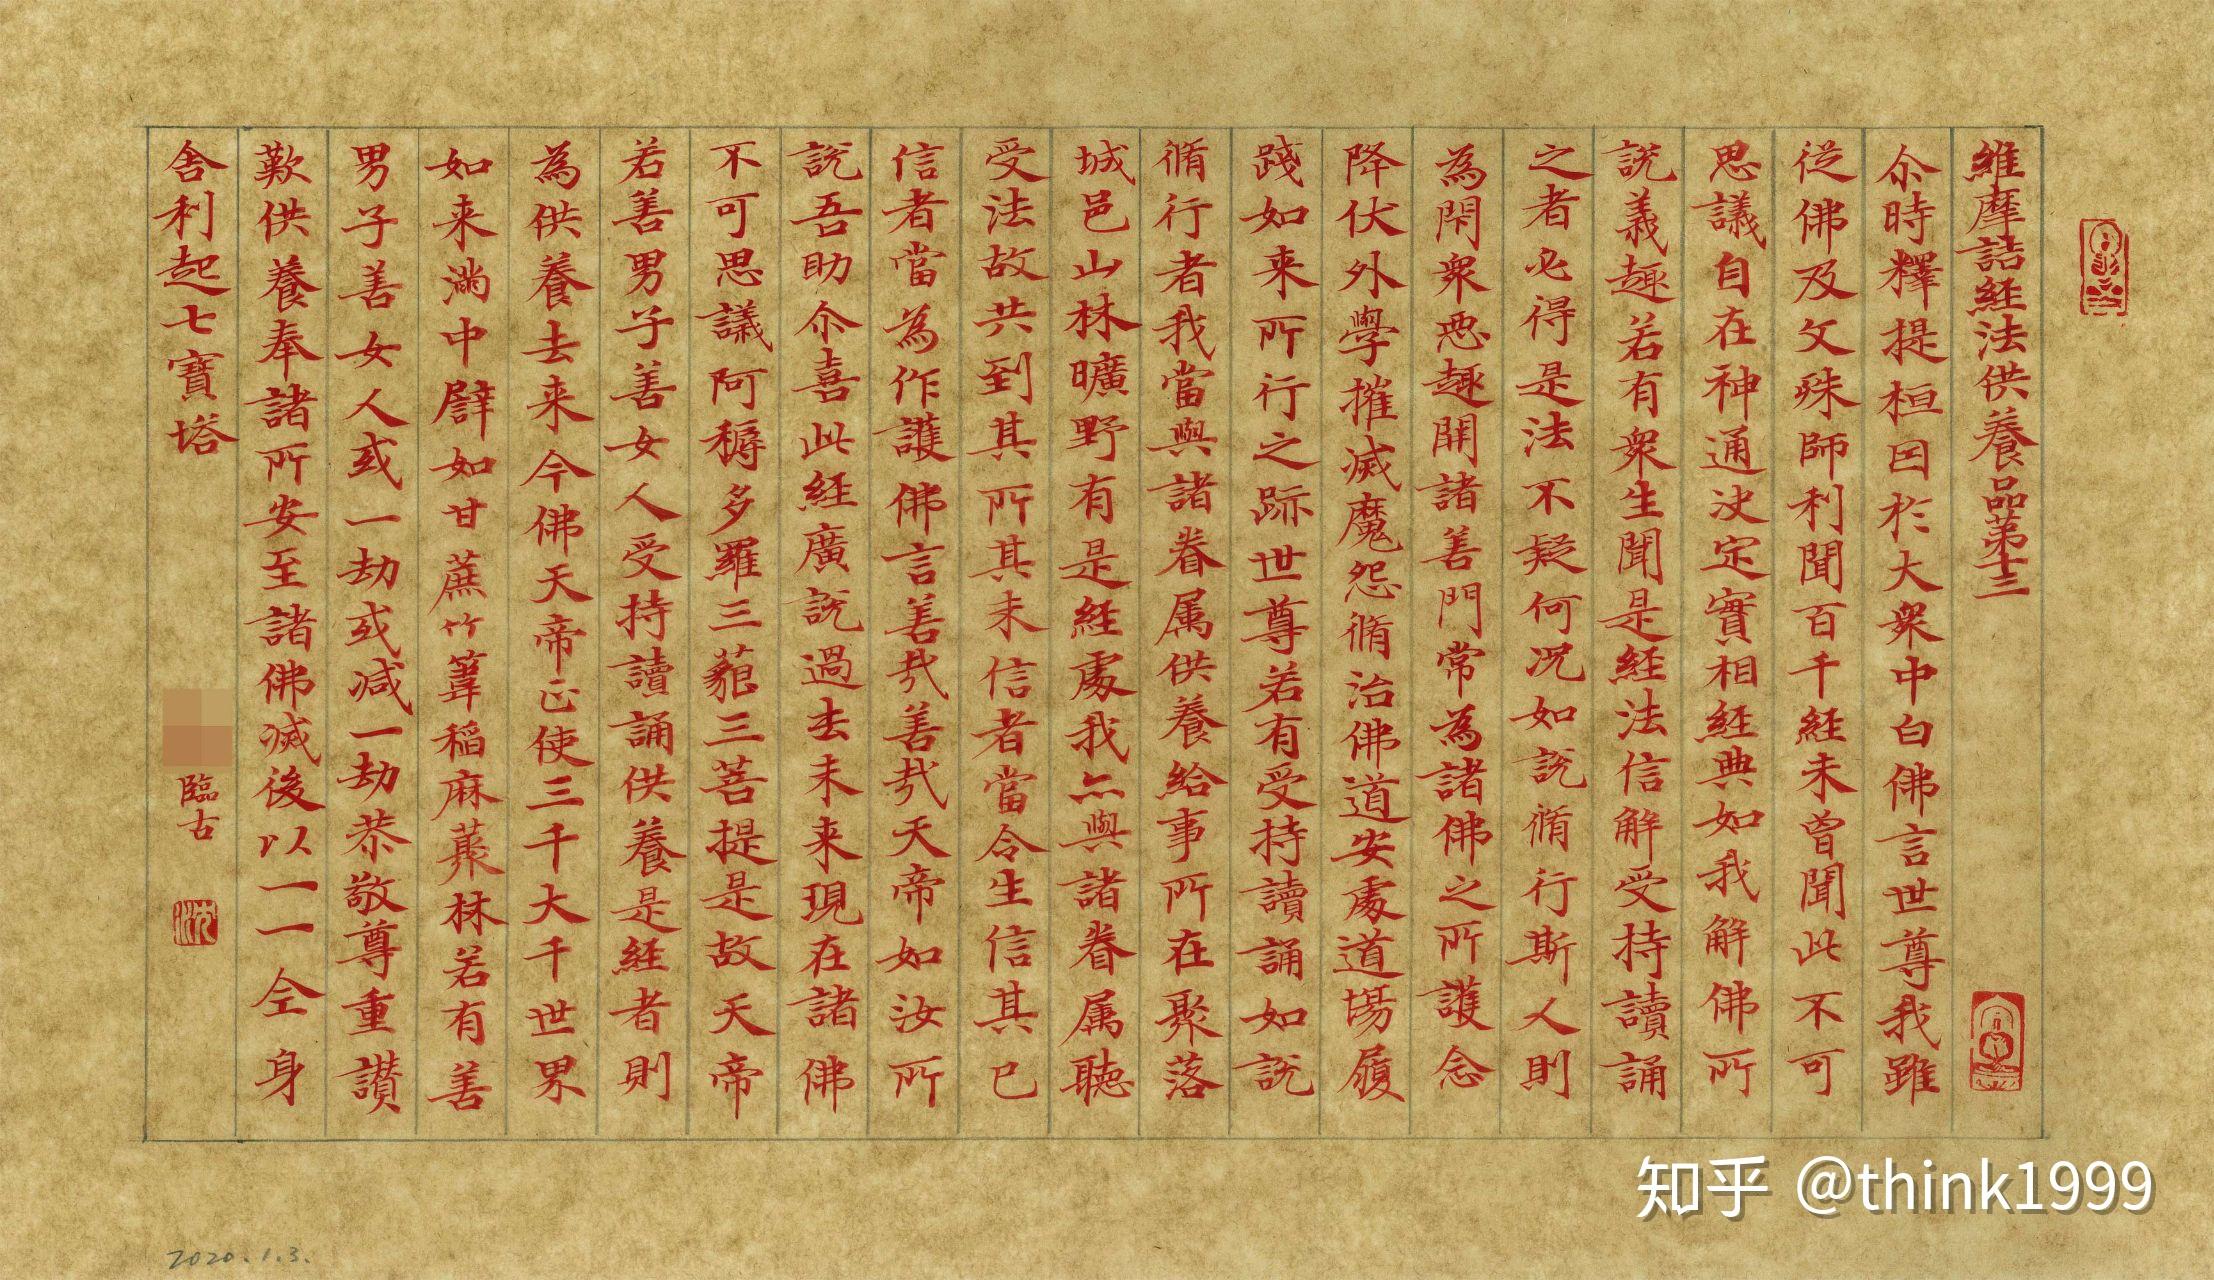 維摩詰経法供養品第十三
尒時釋提桓因於大衆中白佛言世尊我雖
從佛及文殊師利聞百千経未曽聞此不可
思議自在神通決定實相経典如我解佛所
說義趣若有衆生聞是経法信解受持讀誦
之者必得是法不疑何况如說脩行斯人則
為閇衆惡趣開諸善門常為諸佛之所護念
降伏外學摧滅魔怨脩治佛道安處道場履
踐如来所行之跡世尊若有受持讀誦如說
脩行者我當與諸眷属供養給事所在聚落
城邑山林曠野有是経處我亦與諸眷属聽
受法故共到其所其未信者當令生信其已
信者當為作護佛言善哉善哉天帝如汝所
說吾助尒喜此経廣說過去未来現在諸佛
不可思議阿耨多羅三藐三菩提是故天帝
若善男子善女人受持讀誦供養是経者則
為供養去来今佛天帝正使三千大千世界
如来滿中譬如甘蔗竹葦稲麻藂林若有善
男子善女人或一劫或减一劫恭敬尊重讃
歎供養奉諸所安至諸佛滅後以一一全身
舎利起七寶塔
臨古
2020.1.3.
知乎 @think1999